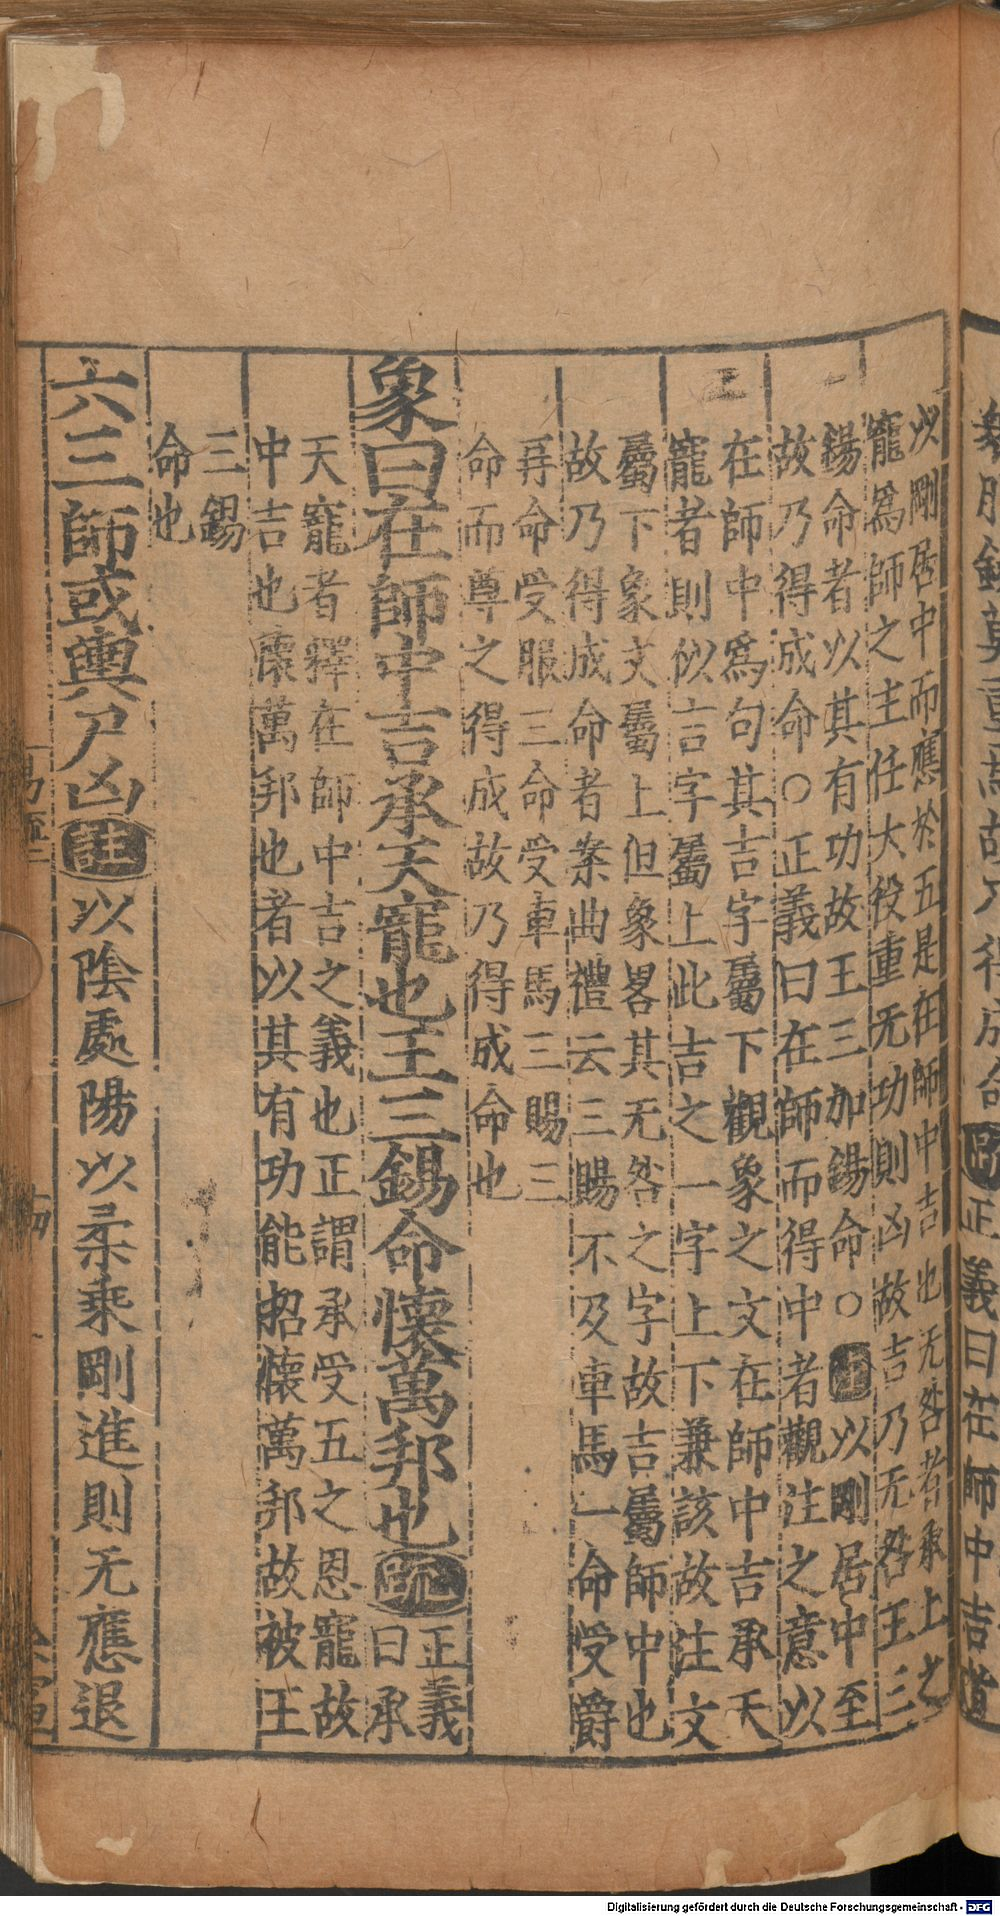 以剛居中而應於五是在師中吉也无咎者承上之
寵爲師之主任大役重无功則凶故吉乃无咎王三
錫命者以其有功故王三加錫命○
以剛居中至
故乃得成命○正義曰在師而得中者觀注之意以
在師中爲句其吉字屬下觀象之文在師中吉承天
寵者則似言字屬上此吉之一字上下兼該故注文
屬下象文屬上但象畧其无咎之字故吉屬師中也
故乃得成命者案曲禮云三賜不及車馬一命受爵
再命受服三命受車馬三賜三
命而尊之得成故乃得成命也
象曰在師中吉承天寵也王三錫命懷萬邦也疏正義
曰承
天寵者釋在師中吉之義也正謂承受五之恩寵故
中吉也懷萬邦也者以其有功能招懷萬邦故被王
三錫
命也
六三師或輿尸凶註以陰處陽以柔乘剛進則无應退
正義曰在師中吉
Digitalisierung gefördert durch die Deutsche Forschungsgemeinschaft - DFG